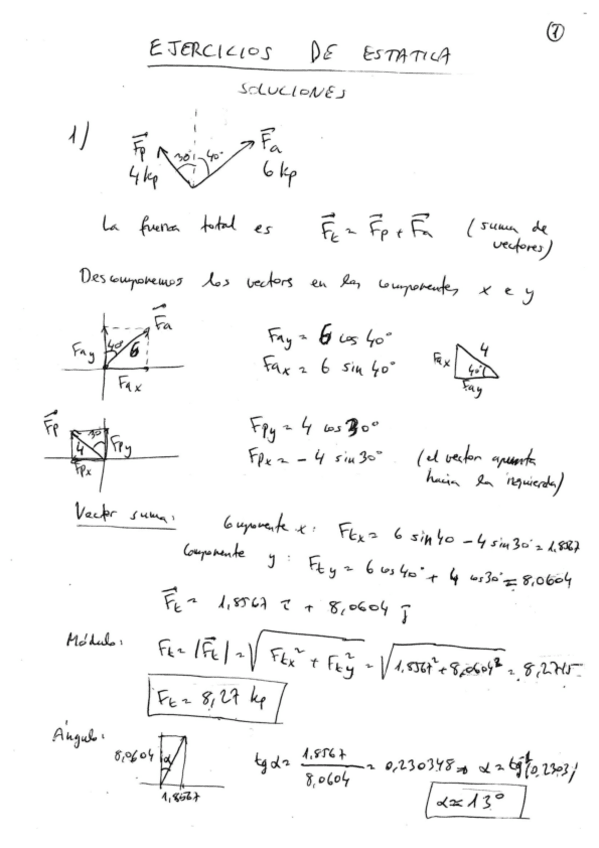 1
EJERCICIOS DE ESTATICA
SOLUCIONES
1)
F⃗p 30° 40° F⃗a
4 kp 6 kp
La fuerza total es F⃗t = F⃗p + F⃗a (suma de vectores)
Descomponemos los vectors en las componentes x e y
F⃗a
Fay 40° 6
Fax
Fay = 6 cos 40°
Fax = 6 sin 40°
Fax 4 40°
Fay
F⃗p 4 30 Fpy
Fpx
Fpy = 4 cos 30°
Fpx = - 4 sin 30° (el vector apunta hacia la izquierda)
Vector suma: Componente x: Ftx = 6 sin 40 - 4 sin 30° = 1,8567
Componente y: Fty = 6 cos 40° + 4 cos 30° = 8,0604
F⃗t = 1,8567 i⃗ + 8,0604 j⃗
Módulo: Ft = |F⃗t| = √(Ftx² + Fty²) = √(1,8567² + 8,0604²) = 8,2715
Ft = 8,27 kp
Ángulo:
8,0604 α
1,8567
tg α = 1,8567 / 8,0604 = 0,230348 ⇒ α = tg⁻¹(0,2303)
α ≈ 13°